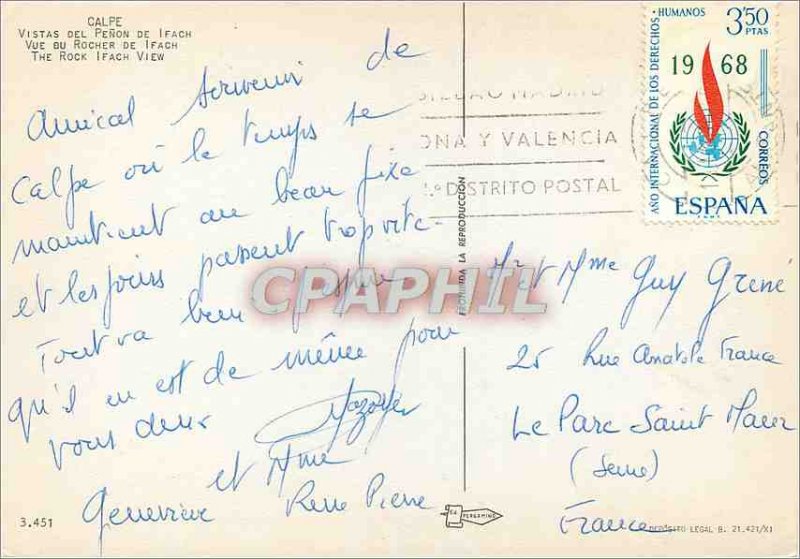 CALPE
VISTAS DEL PEÑON DE IFACH
VUE DU ROCHER DE IFACH
THE ROCK IFACH VIEW
Amical souvenir de
Calpe où le temps se
maintient au beau fixe
et les jours passent trop vite.
Tout va bien
qu'il en est de même pour
vous deux
et Mme
Geneviève Pierre
3.451
PROHIBIDA LA REPRODUCCIÓN
BILBAO MADRID
ONA Y VALENCIA
DISTRITO POSTAL
AÑO INTERNACIONAL DE LOS DERECHOS HUMANOS
3'50
PTAS
1968
CORREOS
ESPAÑA
Mr et Mme Guy Grené
25 Rue Anatole France
Le Parc Saint Maur
(Seine)
France
DEPÓSITO LEGAL B. 21.421/XI
PERGAMINO
CPAPHIL